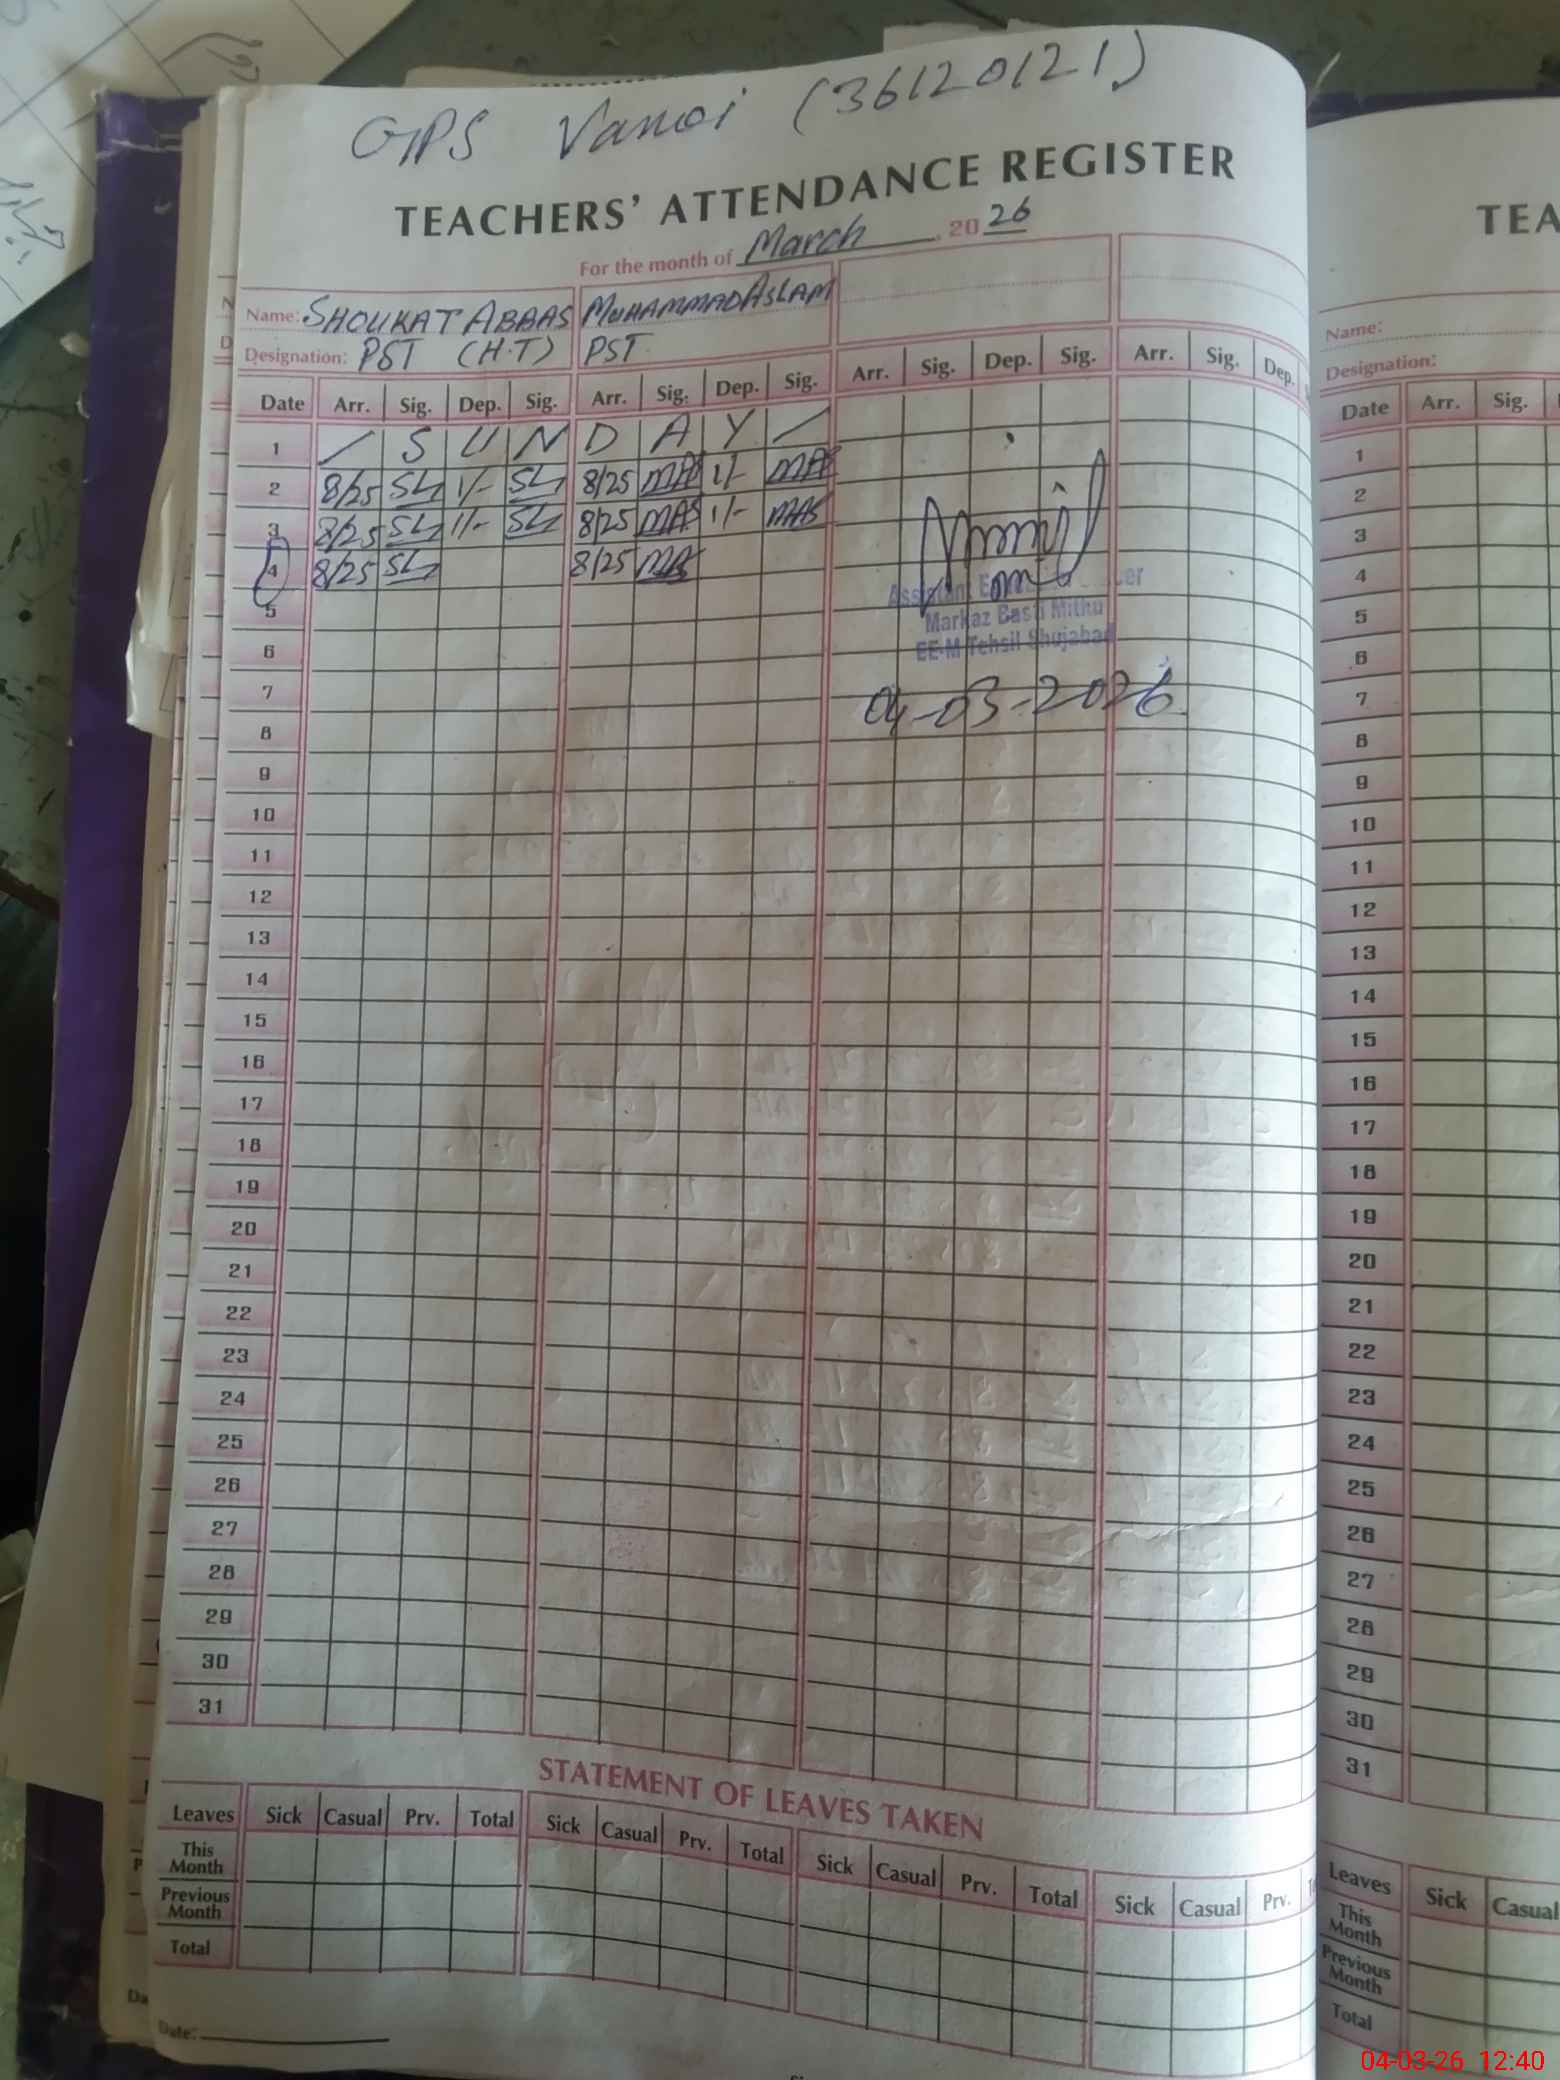 GPS Vanoi (36120121)
TEACHERS' ATTENDANCE REGISTER
For the month of March, 2026
Name: SHOUKAT ABAAS MUHAMMAD ASLAM
Designation: PST (H.T) PST
Date Arr. Sig. Dep. Sig. Arr. Sig. Dep. Sig. Arr. Sig. Dep. Sig. Arr. Sig. Dep.
1 / S U N D A Y /
2 8/25 SL 1/- SL 8/25 MAS 1/- MAS
3 8/25 SL 1/- SL 8/25 MAS 1/- MAS
4 8/25 SL 8/25 MAS
5
Markaz Basti Mithu
6
EE-M Tehsil Shujabad
7
04-03-2026
8
9
10
11
12
13
14
15
16
17
18
19
20
21
22
23
24
25
26
27
28
29
30
31
STATEMENT OF LEAVES TAKEN
Leaves Sick Casual Prv. Total Sick Casual Prv. Total Sick Casual Prv. Total Sick Casual Prv.
This Month
Previous Month
Total
Date:
TEA
Name:
Designation:
Date Arr. Sig.
1
2
3
4
5
6
7
8
9
10
11
12
13
14
15
16
17
18
19
20
21
22
23
24
25
26
27
28
29
30
31
Leaves Sick Casual
This Month
Previous Month
Total
04-03-26 12:40